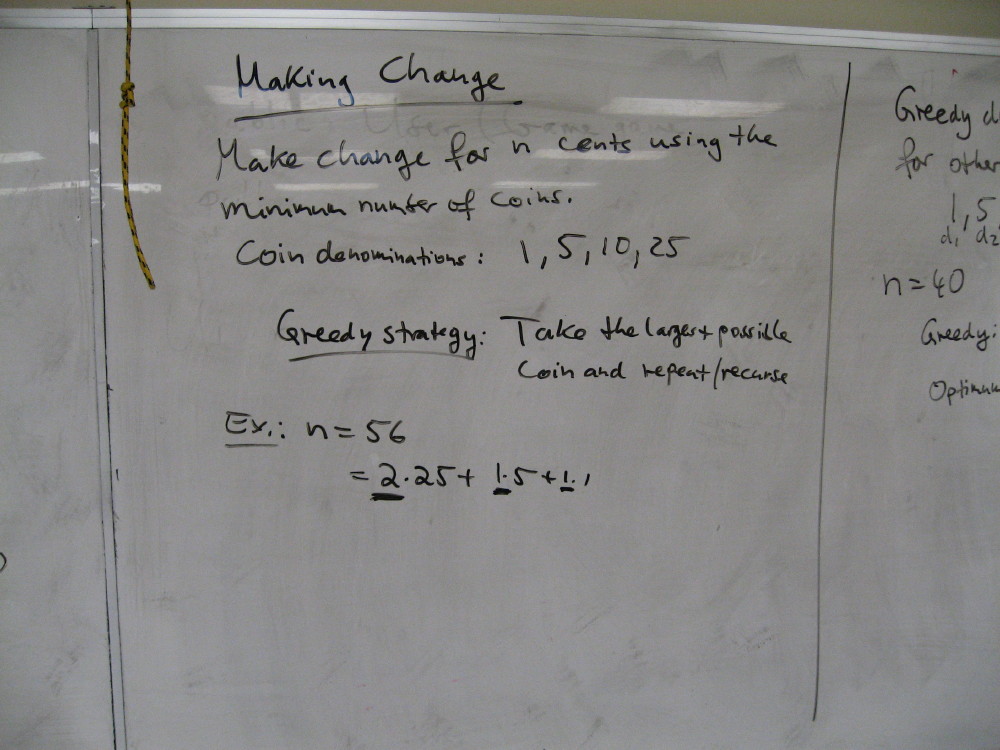 Making Change
Make change for n cents using the
minimum number of coins.
Coin denominations: 1, 5, 10, 25
Greedy strategy: Take the largest possible
Coin and repeat/recurse
Ex.: n = 56
= 2·25 + 1·5 + 1·1
Greedy d
for other
1, 5
d1 d2
n = 40
Greedy:
Optimum